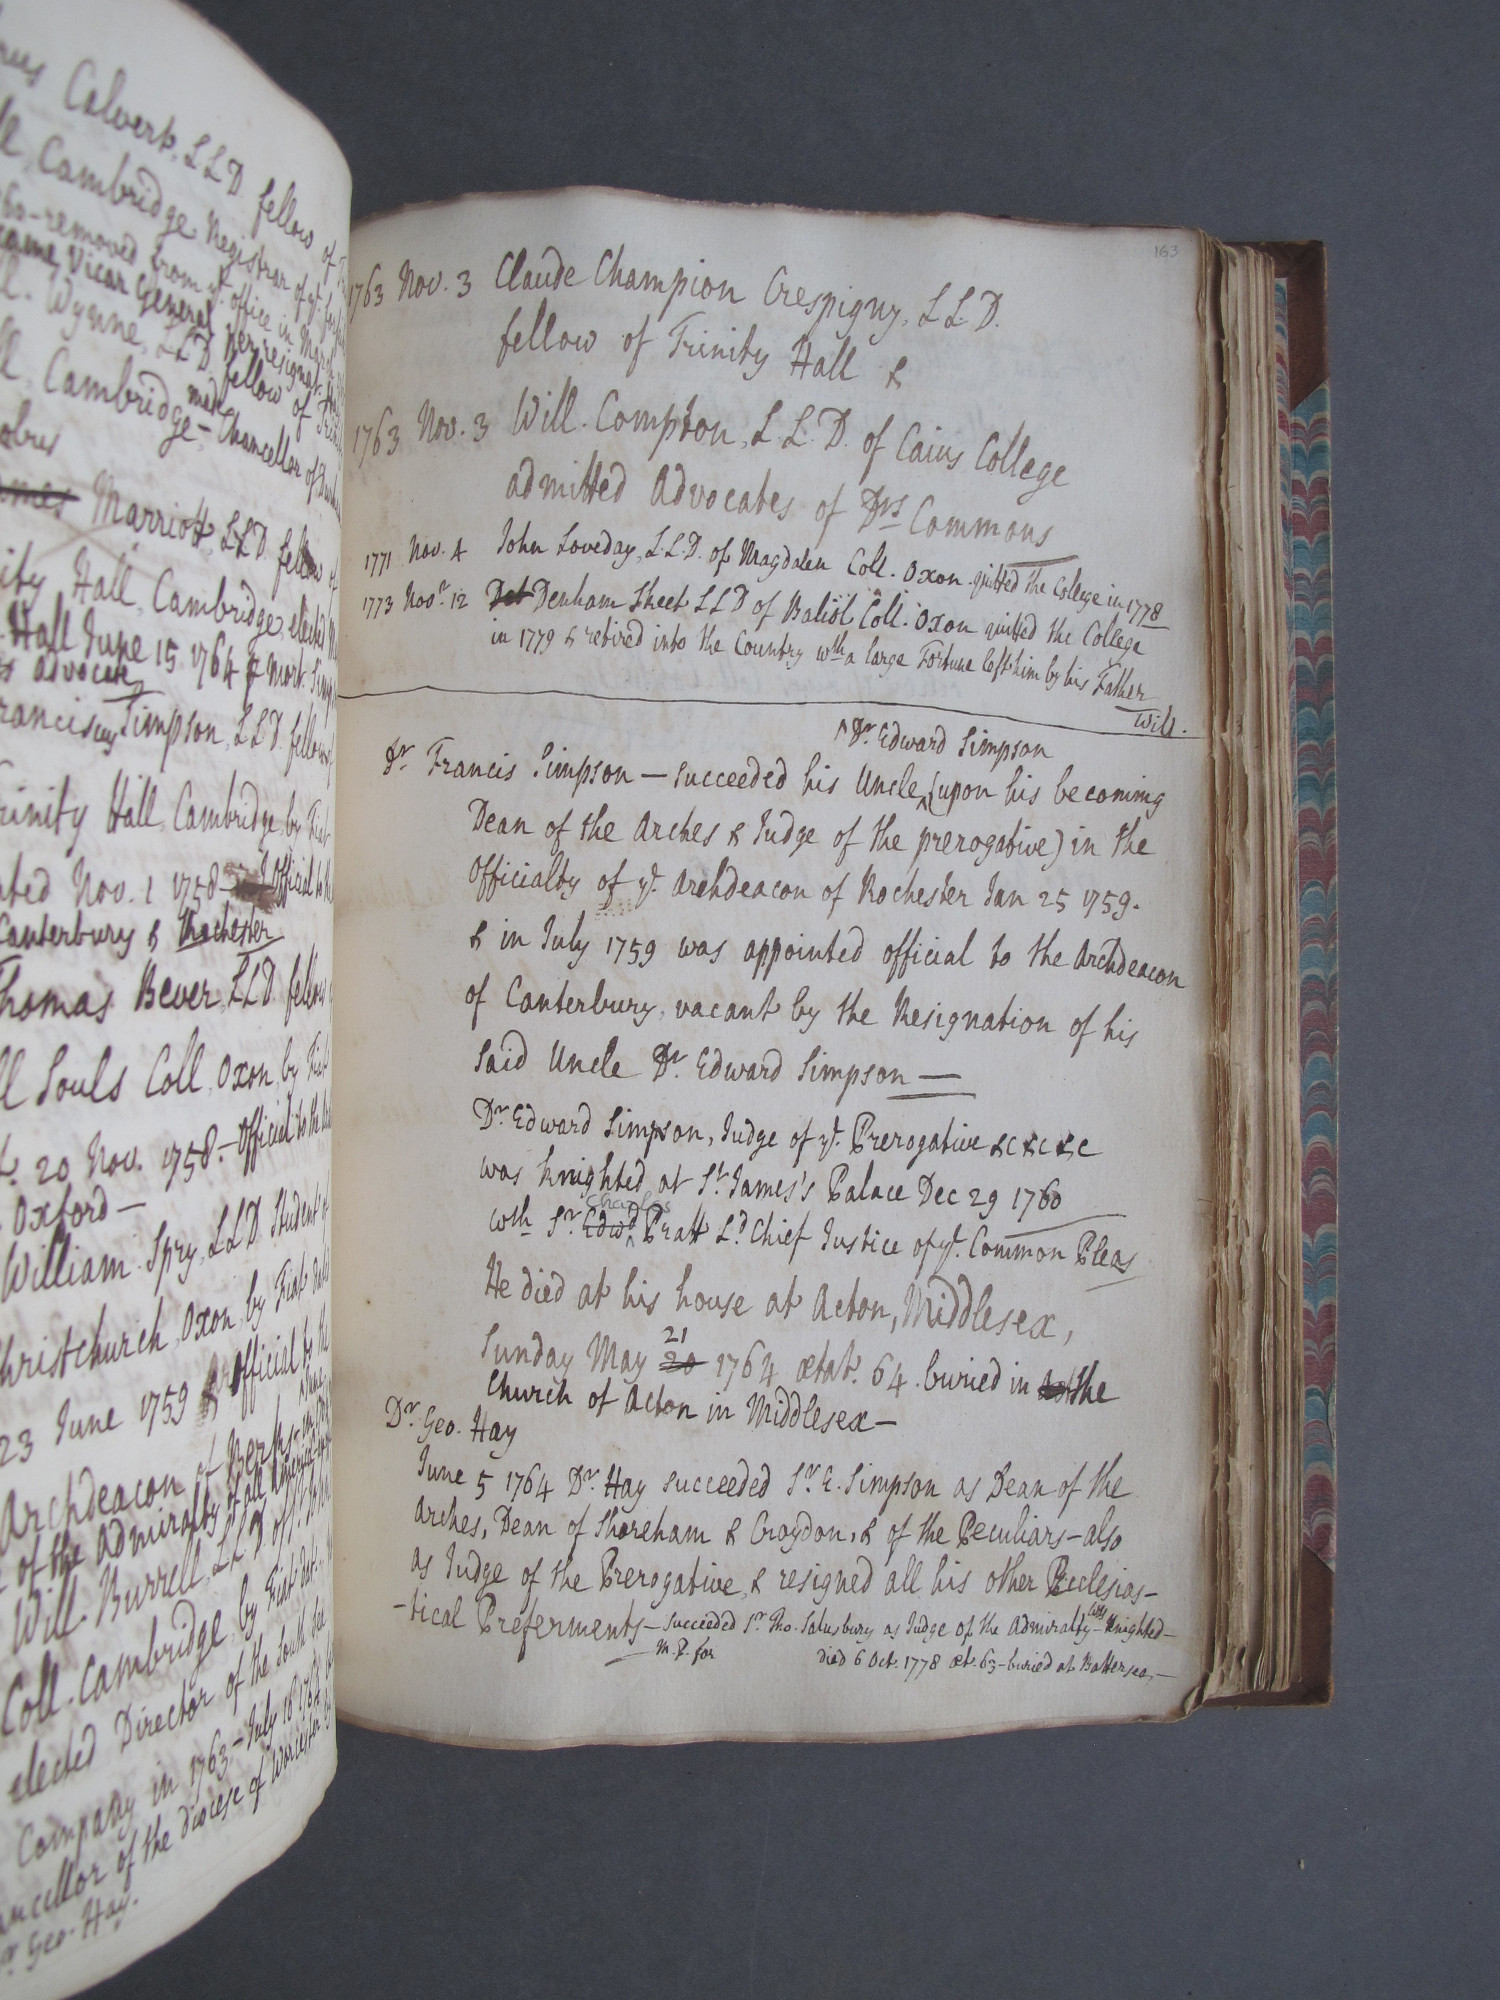 Calvert, LLD. fellow of
Cambridge Registrar of ye.
removed from ye. office in March
came Vicar General per resignat.
Wynne, LLD. fellow of Trin
Cambridge - made Chancellor of
Marriott, LLD. fellow of
ity Hall, Cambridge, elected
Hall June 15 1764 p mort. Simp
Advocate
ranciscus Simpson, LLD. fellow of
rinity Hall, Cambridge, by Fiat
ated Nov. 1 1758 - Official to the
Canterbury & Rochester
Thomas Bever, LLD. fellow
ll Souls Coll. Oxon, by Fiat
20 Nov. 1758. - Official to the
Oxford -
William Spry, LLD. Student of
Christchurch, Oxon, by Fiat
23 June 1759 Official to the
Archdeacon of Berks
of the Admiralty of all America
Will. Burrell, LLD. of St. John
Coll. Cambridge, by Fiat dat.
elected Director of the South Sea
Company in 1763 - July 16 1764
ancellor of the diocese of Worcester by
Geo. Hay.
163
1763 Nov. 3 Claude Champion Crespigny, L.L.D.
fellow of Trinity Hall &
1763 Nov. 3 Will. Compton, L.L.D. of Caius College
admitted Advocates of Drs Commons
1771 Nov. 4 John Loveday, L.L.D. of Magdalen Coll. Oxon. quitted the College in 1778
1773 Novr. 12 Denham Skeet LLD of Baliol Coll. Oxon quitted the College
in 1779 & retired into the Country wth a large Fortune left him by his Father
Will.
Dr. Edward Simpson
Dr. Francis Simpson - succeeded his Uncle (upon his becoming
Dean of the Arches & Judge of the prerogative) in the
Officialty of ye. Archdeacon of Rochester Jan 25 1759.
& in July 1759 was appointed official to the Archdeacon
of Canterbury, vacant by the Resignation of his
said Uncle Dr. Edward Simpson -
Dr. Edward Simpson, Judge of ye. Prerogative &c &c &c
was knighted at St. James's Palace Dec 29 1760
Charles
wth Sr. Edwd. Pratt Ld. Chief Justice of ye. Common Pleas
He died at his house at Acton, Middlesex,
21
Sunday May 20 1764 ætat. 64. buried in the
Church of Acton in Middlesex -
Dr. Geo. Hay
June 5 1764 Dr. Hay succeeded Sr. E. Simpson as Dean of the
Arches, Dean of Shoreham & Croydon, & of the Peculiars - also
as Judge of the Prerogative, & resigned all his other Ecclesias-
-tical Preferments - succeeded Sr. Tho. Salusbury as Judge of the Admiralty - was Knighted -
M.P. for died 6 Oct. 1778 æt. 63 - buried at Battersea, -